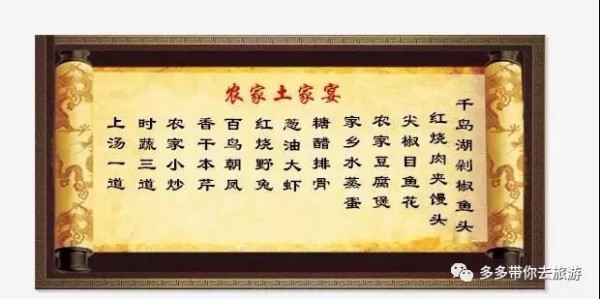 农家土家宴
千岛湖剁椒鱼头
红烧肉夹馒头
尖椒目鱼花
农家豆腐煲
家乡水蒸蛋
糖醋排骨
葱油大虾
红烧野兔
百鸟朝凤
香干本芹
农家小炒
时蔬三道
上汤一道
多多带你去旅游